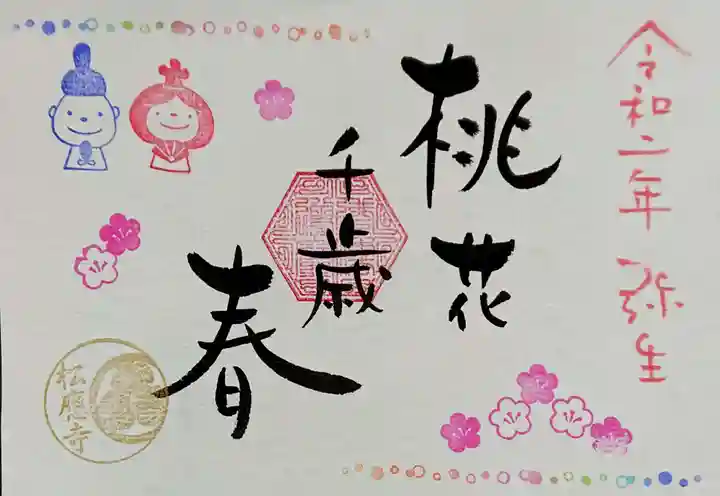 令和二年 弥生
桃花
千歳
春
松應寺